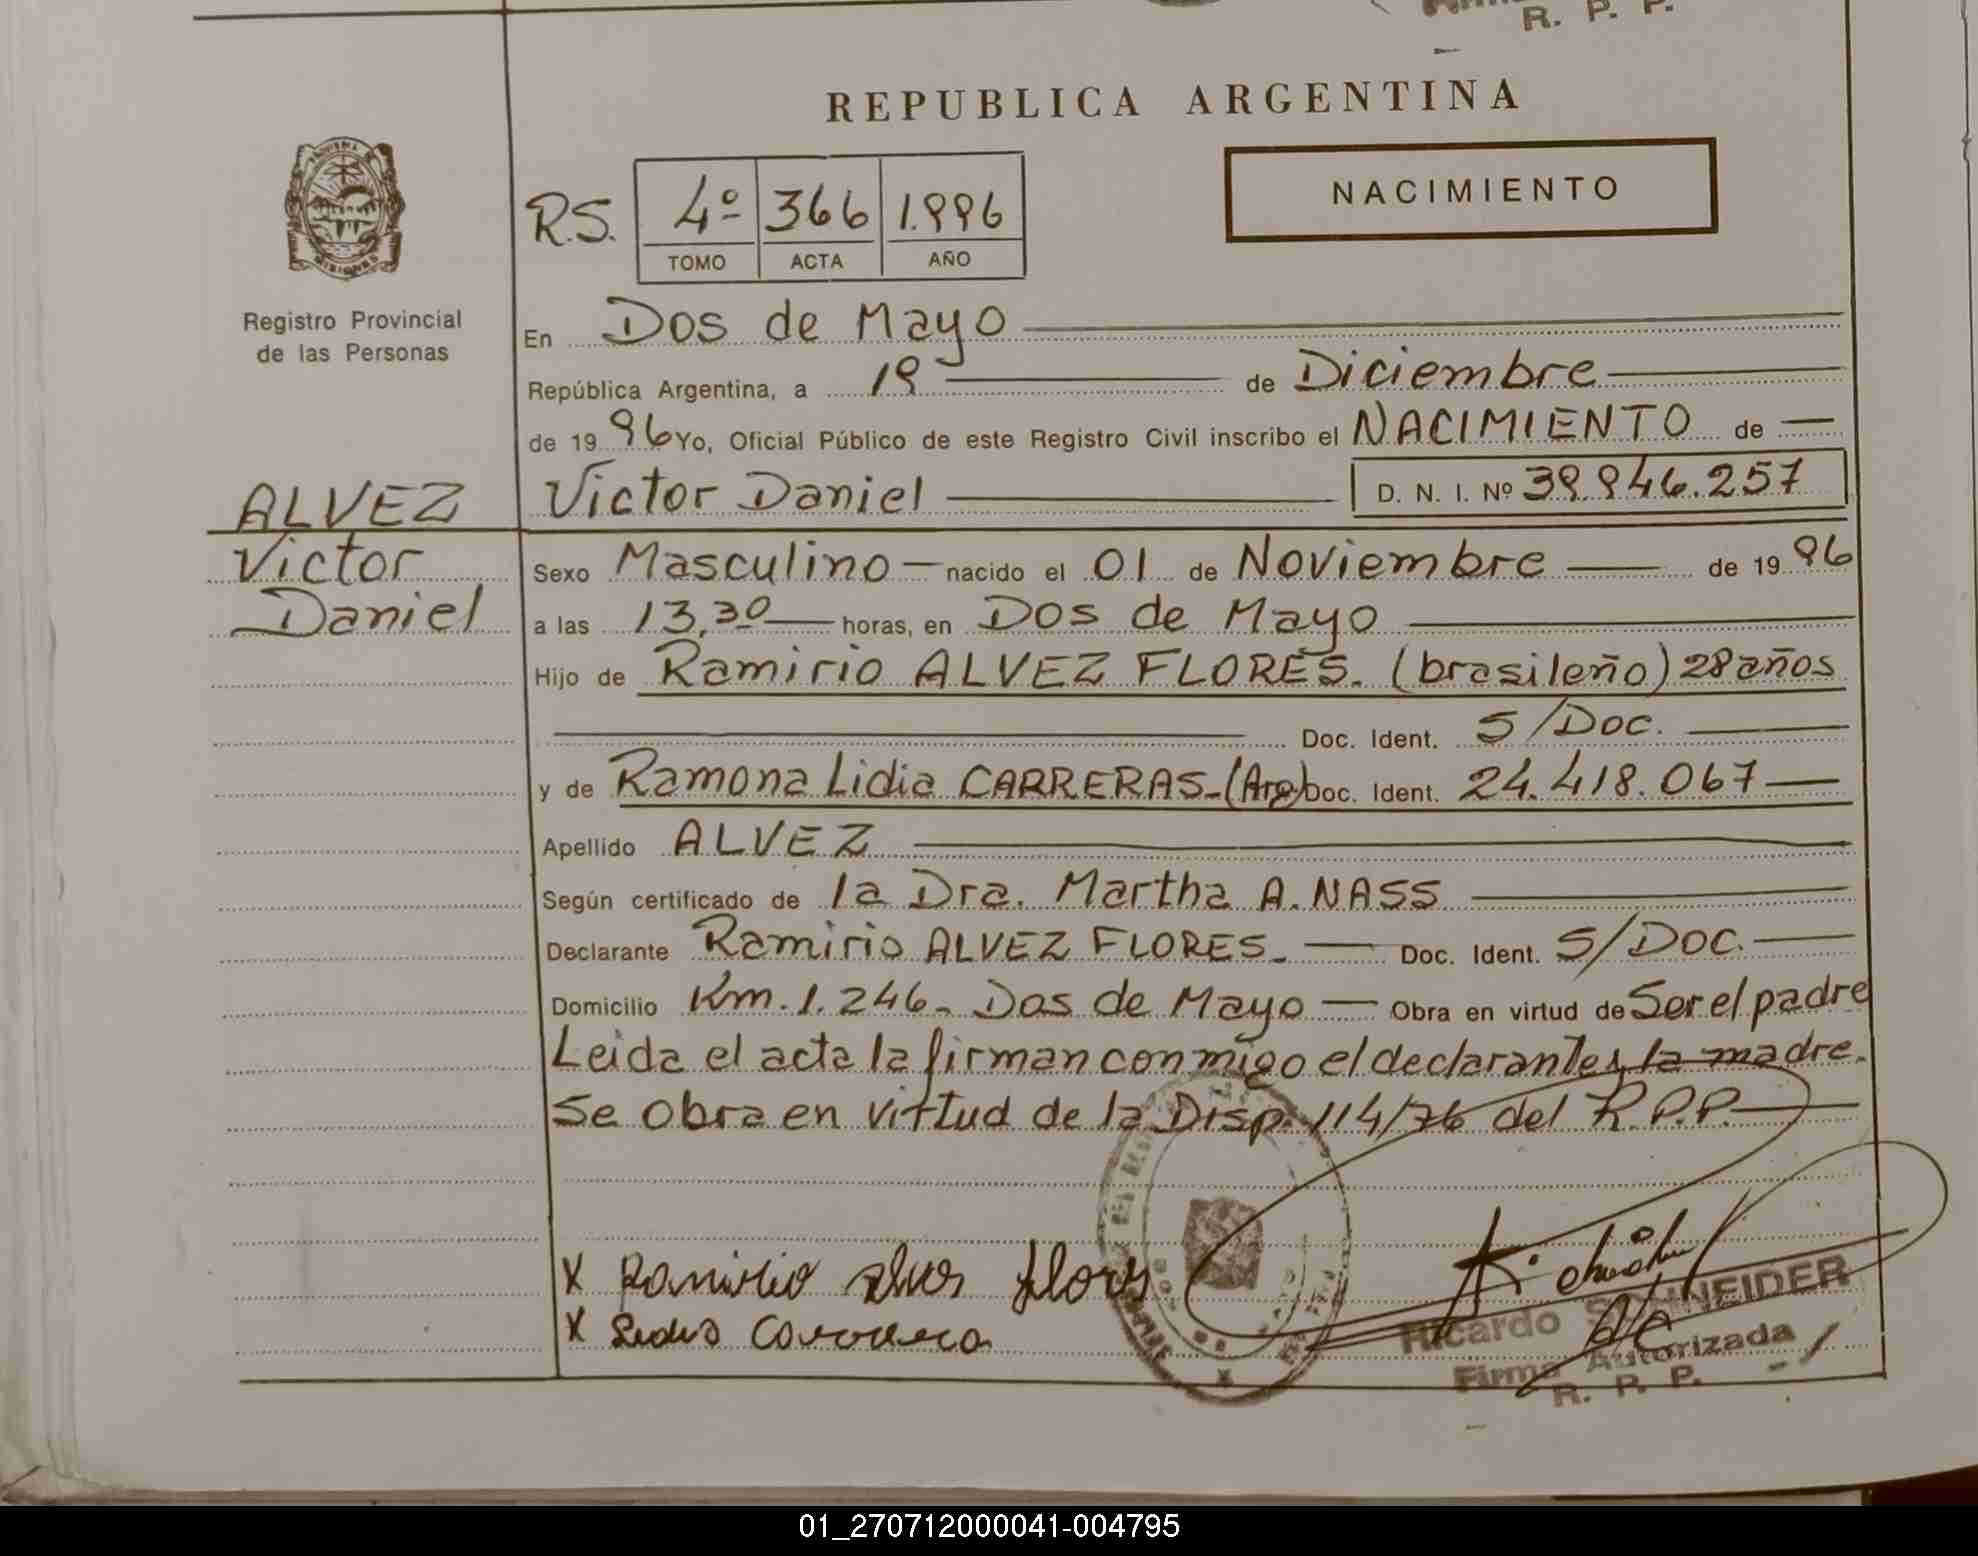 R. P. P.
REPUBLICA ARGENTINA
NACIMIENTO
R.S. 4º 366 1.996
TOMO ACTA AÑO
Registro Provincial
de las Personas
En Dos de Mayo
República Argentina, a 19 de Diciembre
de 1996 Yo, Oficial Público de este Registro Civil inscribo el NACIMIENTO de
Victor Daniel D. N. I. Nº 39.946.257
ALVEZ
Victor
Daniel
Sexo Masculino nacido el 01 de Noviembre de 1996
a las 13,30 horas, en Dos de Mayo
Hijo de Ramirio ALVEZ FLORES. (brasileño) 28 años
Doc. Ident. S/Doc.
y de Ramona Lidia CARRERAS-(Arg) Doc. Ident. 24.418.067
Apellido ALVEZ
Según certificado de la Dra. Martha A. NASS
Declarante Ramirio ALVEZ FLORES.- Doc. Ident. S/DOC.
Domicilio Km. 1.246- Dos de Mayo Obra en virtud de Ser el padre
Leida el acta la firman conmigo el declarante y la madre.
Se Obra en virtud de la Disp. 114/76 del R.P.P.
X Ramirio alves flores
X Lidia Carrera
Ricardo SCHNEIDER
Firma Autorizada
R. P. P.
01_270712000041-004795